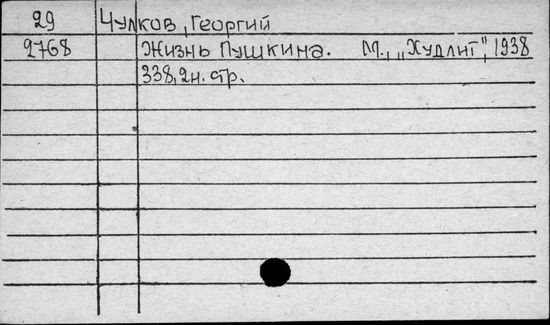 29 Чулков, Георгий
2768 Жизнь Пушкина. М., „Худлит", 1938
338, 2н. стр.